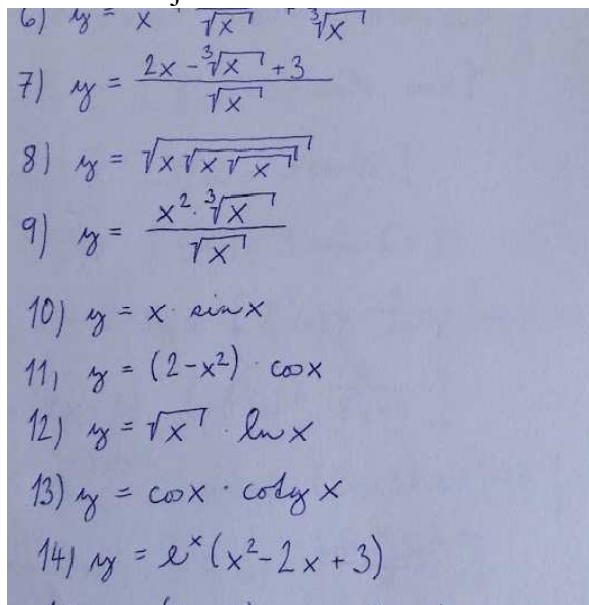 6) y = x √x ∛x
7) y = (2x - ∛x + 3) / √x
8) y = √(x√(x√x))
9) y = (x² · ∛x) / √x
10) y = x · sinx
11, y = (2-x²) · cosx
12) y = √x · ln x
13) y = cosx · cotg x
14) y = eˣ (x² - 2x + 3)